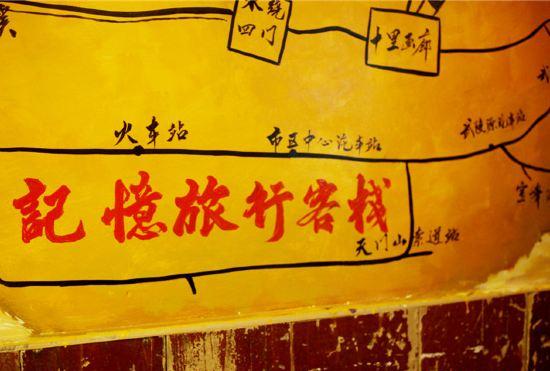 水绕
四门
十里画廊
火车站
市区中心汽车站
武陵源汽车站
記憶旅行客栈
天门山索道站